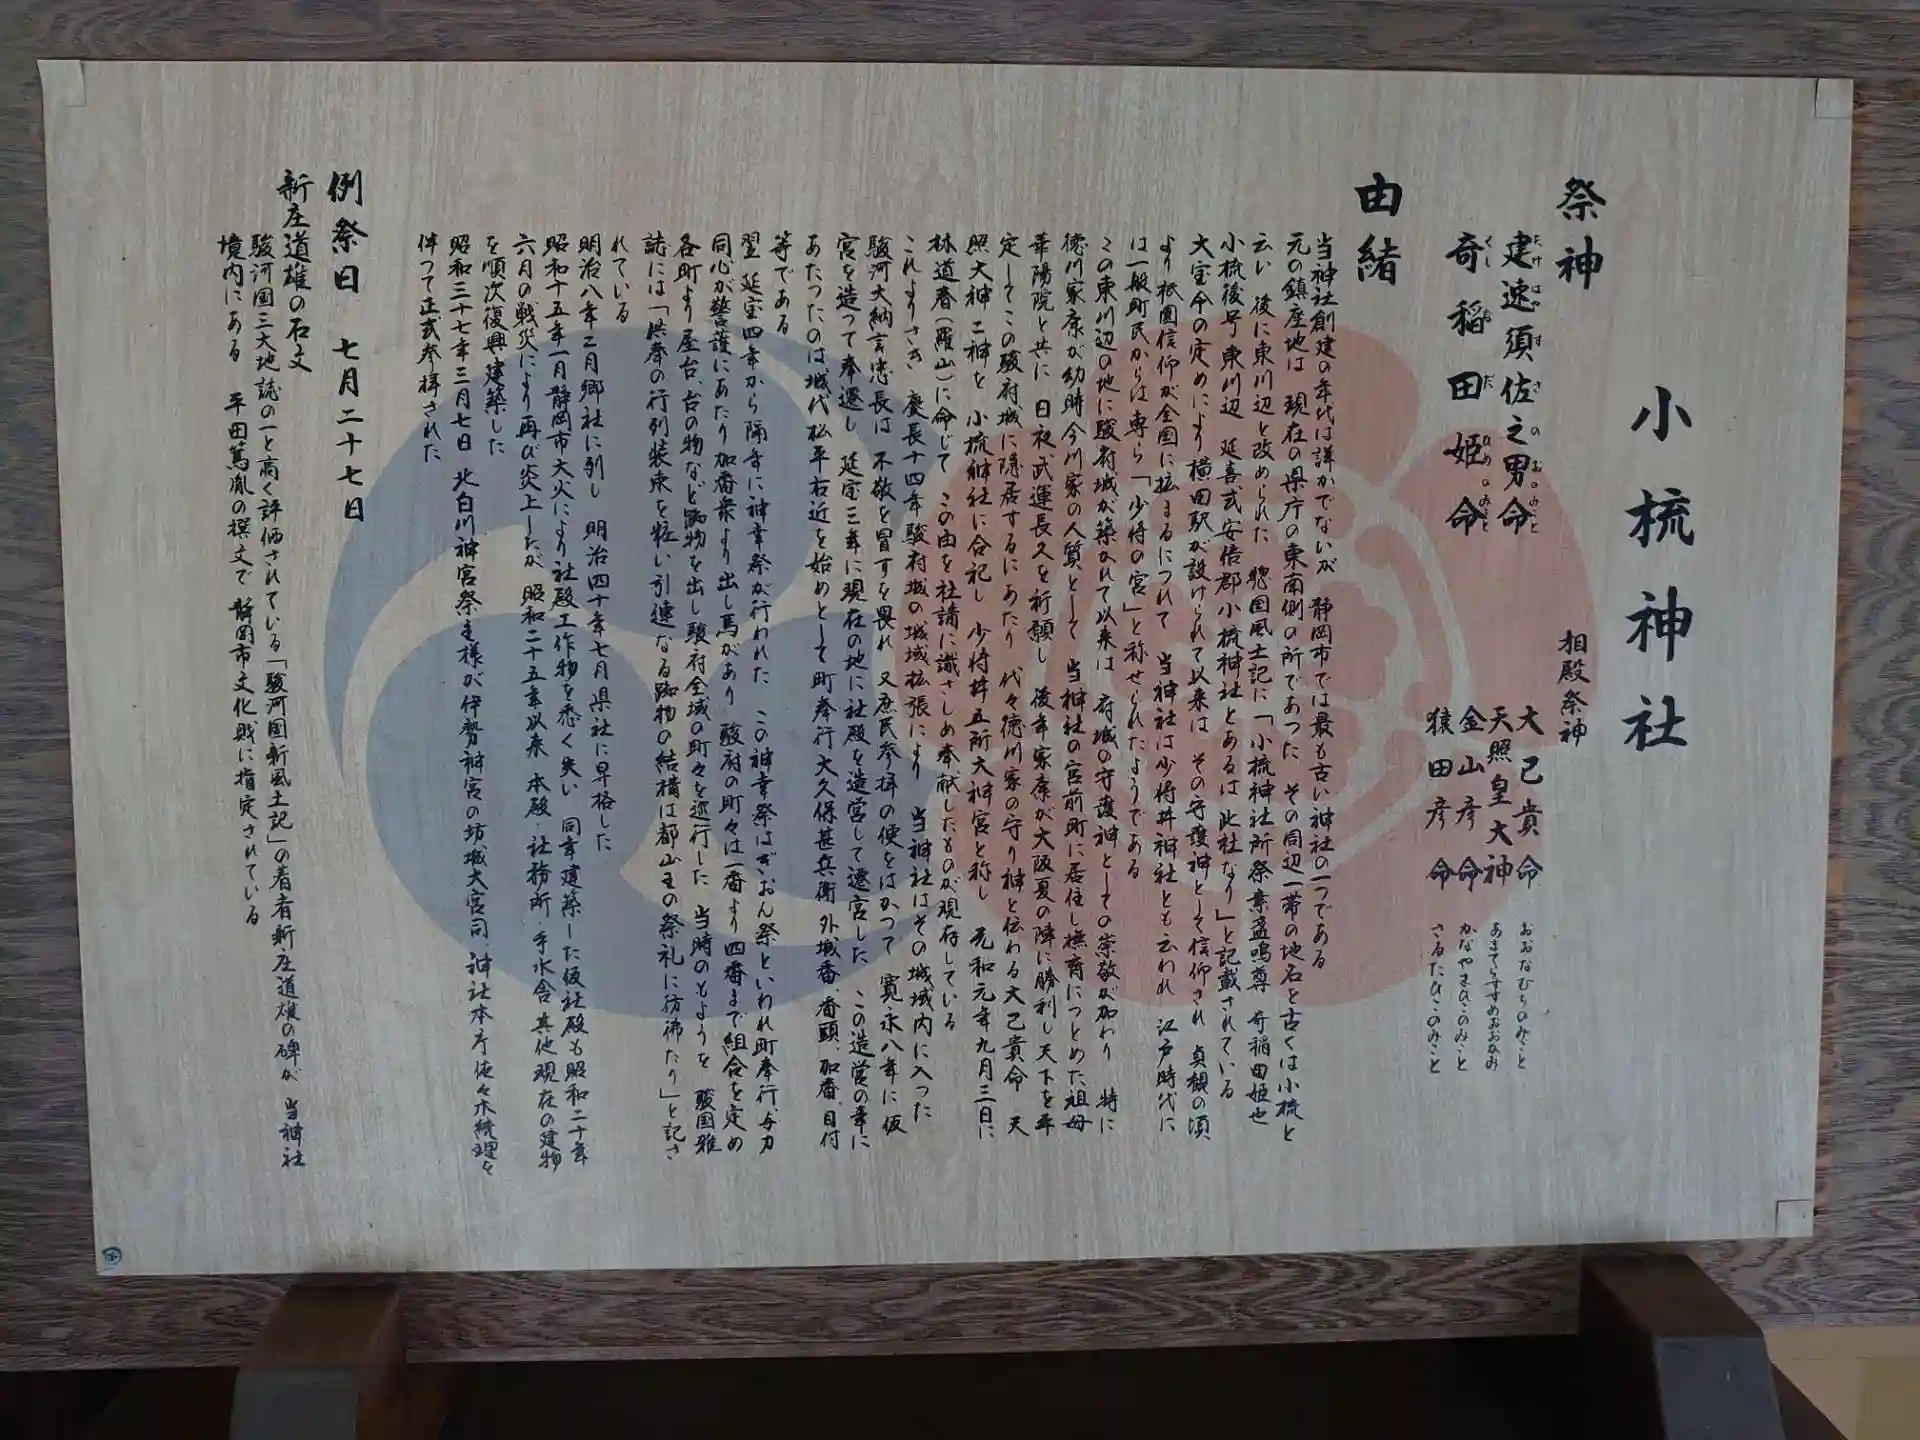 小梳神社
祭神
建速須佐之男命
たけはやすさのおのみこと
奇稲田姫命
くしいなだひめのみこと
相殿祭神
大己貴命 おおなむちのみこと
天照皇大神 あまてらすすめおおかみ
金山彦命 かなやまひこのみこと
猿田彦命 さるたひこのみこと
由緒
当神社創建の年代は詳かでないが 静岡市では最も古い神社の一つである
元の鎮座地は 現在の県庁の東南側の所であつた その周辺一帯の地名を古くは小梳と
云い 後に東川辺と改められた 惣国風土記に「小梳神社所祭素盞鳴尊 奇稲田姫也
小梳後号東川辺 延喜式安倍郡小梳神社とあるは 此社なり」と記載されている
大宝令の定めにより横田駅が設けられて以来は その守護神として信仰され 貞観の頃
より祇園信仰が全国に拡まるにつれて 当神社は少将井神社とも云われ 江戸時代に
は一般町民からは専ら「少将の宮」と称せられたようである
この東川辺の地に駿府城が築かれて以来は 府城の守護神としての崇敬が加わり 特に
徳川家康が幼時今川家の人質として 当神社の宮前町に居住し撫育につとめた祖母
華陽院と共に 日夜武運長久を祈願し 後年家康が大阪夏の陣に勝利し天下を平
定してこの駿府城に隠居するにあたり 代々徳川家の守り神と伝わる大己貴命 天
照大神 二神を 小梳神社に合祀し 少将井五所大神宮と称し 元和元年九月三日に
林道春(羅山)に命じて この由を社請に識さしめ奉献したものが現存している
これよりさき 慶長十四年駿府城の城域拡張により 当神社はその城域内に入つた
駿河大納言忠長は 不敬を冒すを畏れ 又庶民参拝の便をはかつて 寛永八年に仮
宮を造つて奉遷し 延宝三年に現在の地に社殿を造営して遷宮した この造営の年に
あたつたのは城代松平右近を始めとして町奉行大久保甚兵衛 外城番、番頭、加番、目付
等である
翌 延宝四年から隔年に神幸祭が行われた この神幸祭はぎおん祭といわれ町奉行、与力
同心が警護にあたり加番衆より出し馬があり 駿府の町々は一番より四番まで組合を定め
各町より屋台、台の物など踟物を出し駿府全域の町々を巡行した 当時のもようを 駿国雅
誌には「供奉の行列装束を粧い引連なる踟物の結構は都山王の祭礼に彷彿たり」と記さ
れている
明治八年二月郷社に列し 明治四十年七月県社に昇格した
昭和十五年一月静岡市大火により社殿工作物を悉く失い 同年建築した仮社殿も昭和二十年
六月の戦災により再び炎上したが 昭和二十五年以来 本殿、社務所、手水舎、其他現在の建物
を順次復興建築した
昭和三十七年三月七日 北白川神宮祭主様が伊勢神宮の坊城大宮司、神社本庁佐々木統理を
伴つて正式参拝された
例祭日 七月二十七日
新庄道雄の石文
駿河国三大地誌の一と高く評価されている「駿河国新風土記」の著者新庄道雄の碑が 当神社
境内にある 平田篤胤の撰文で 静岡市文化財に指定されている